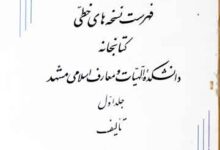 فهرست نسخه های خطی
کتابخانه
دانشکدهٔ الهیات و معارف اسلامی مشهد
جلد اول
تألیف